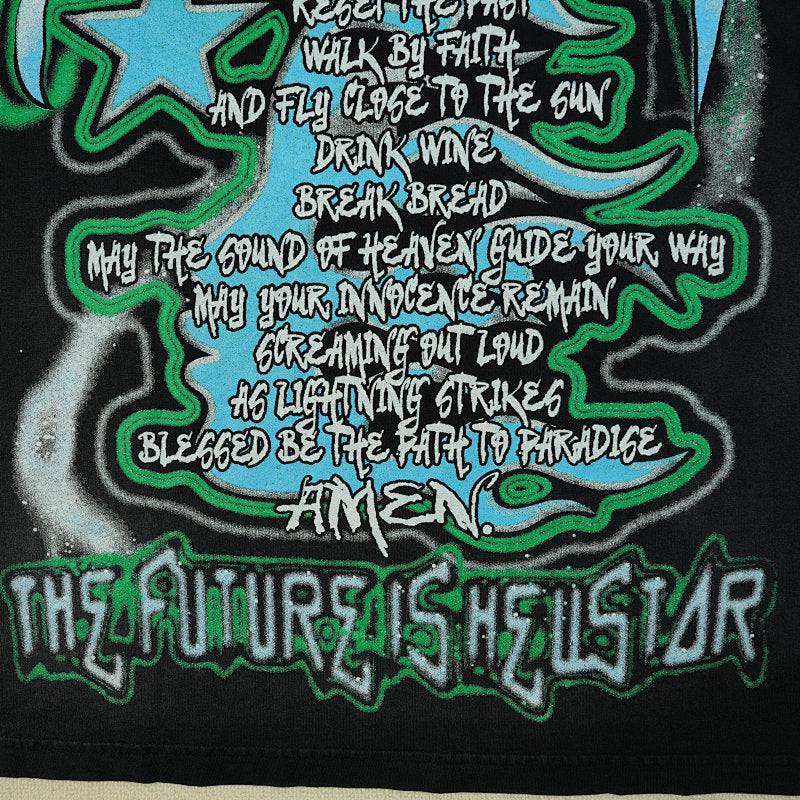 RESET THE PAST
WALK BY FAITH
AND FLY CLOSE TO THE SUN
DRINK WINE
BREAK BREAD
MAY THE SOUND OF HEAVEN GUIDE YOUR WAY
MAY YOUR INNOCENCE REMAIN
SCREAMING OUT LOUD
AS LIGHTNING STRIKES
BLESSED BE THE PATH TO PARADISE
AMEN.
THE FUTURE IS HELLSTAR